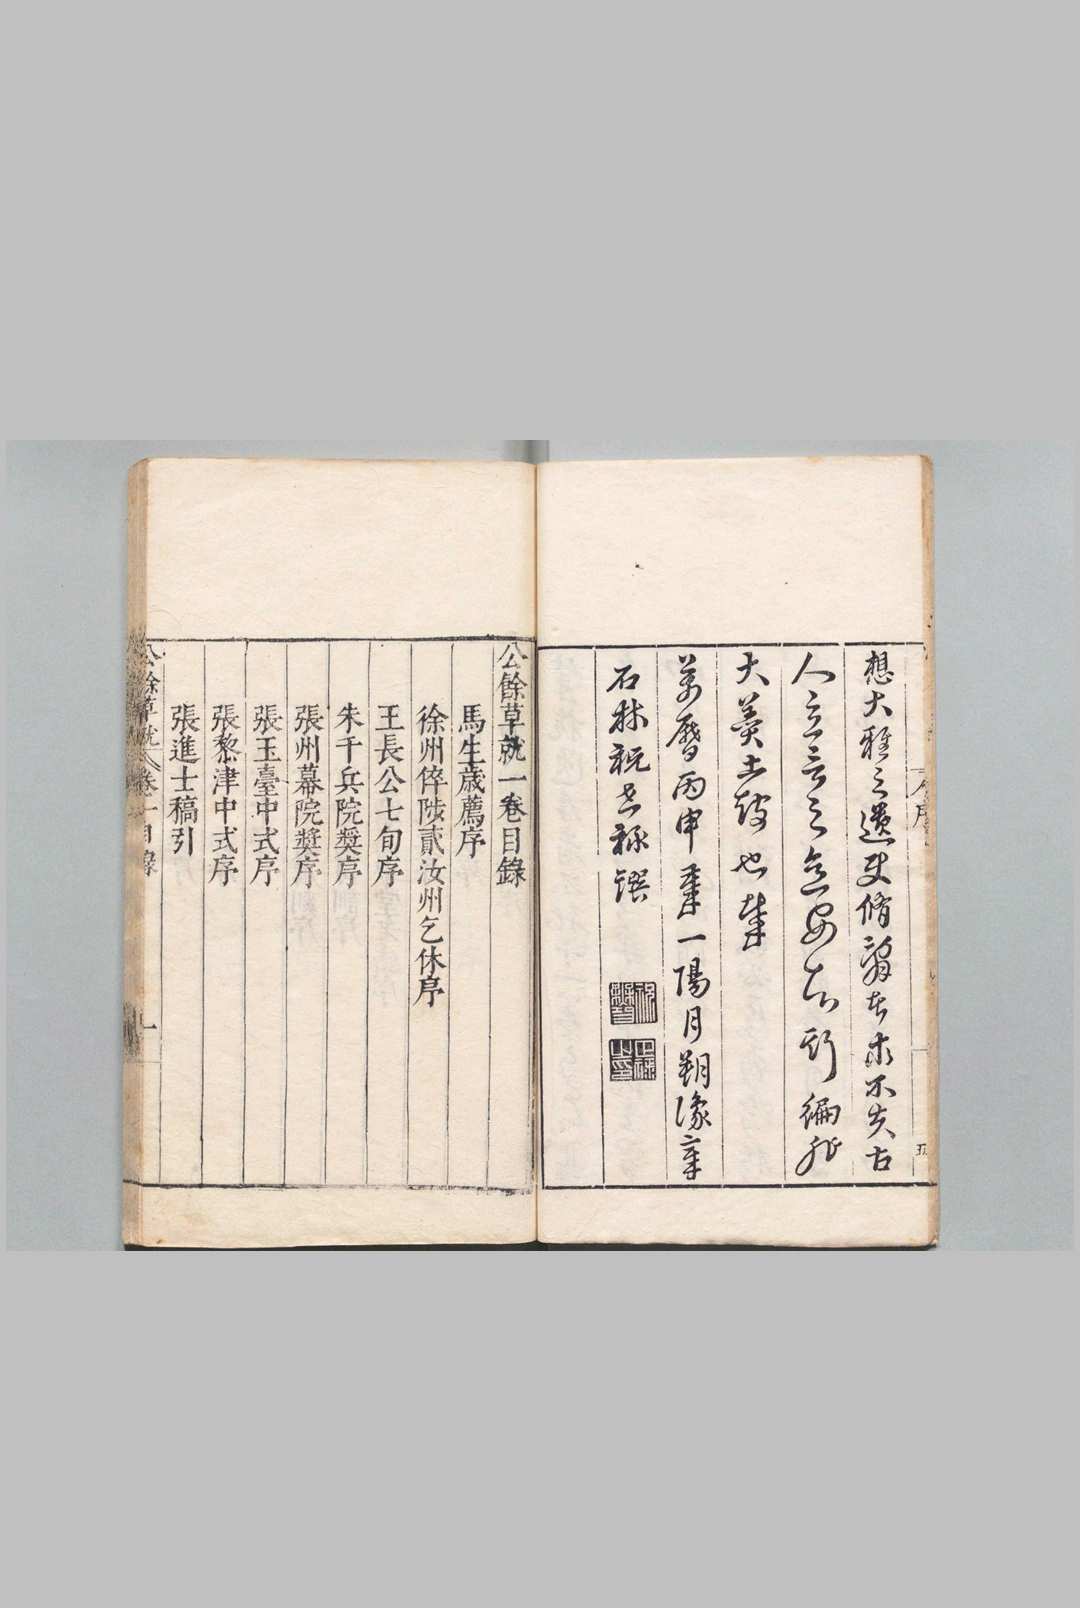 想大雅之遺使脩者求不失古
人立言之意安知斯編非
大羹土鼓也哉
萬曆丙申秊一陽月朔豫章
石林祝世祿譔
公餘草就一卷目錄
馬生歲薦序
徐州倅陟貳汝州乞休序
王長公七旬序
朱千兵院獎序
張州幕院獎序
張玉臺中式序
張黎津中式序
張進士稿引
公餘草就 卷一目錄
一